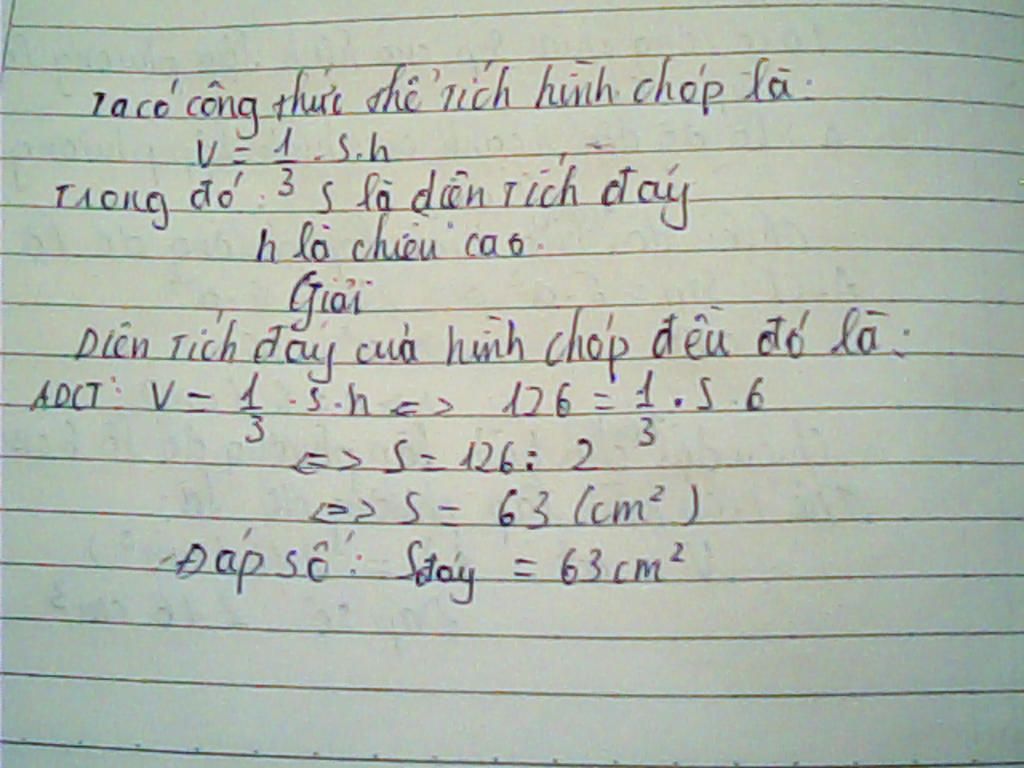 Ta có công thức thể tích hình chóp là:
V = 1/3 . S.h
Trong đó : S là diện tích đáy
h là chiều cao.
Giải
Diện tích đáy của hình chóp đều đó là:
ADCT: V = 1/3 . S.h <=> 126 = 1/3 . S.6
<=> S = 126 : 2
<=> S = 63 (cm²)
Đáp số : Sđáy = 63 cm²